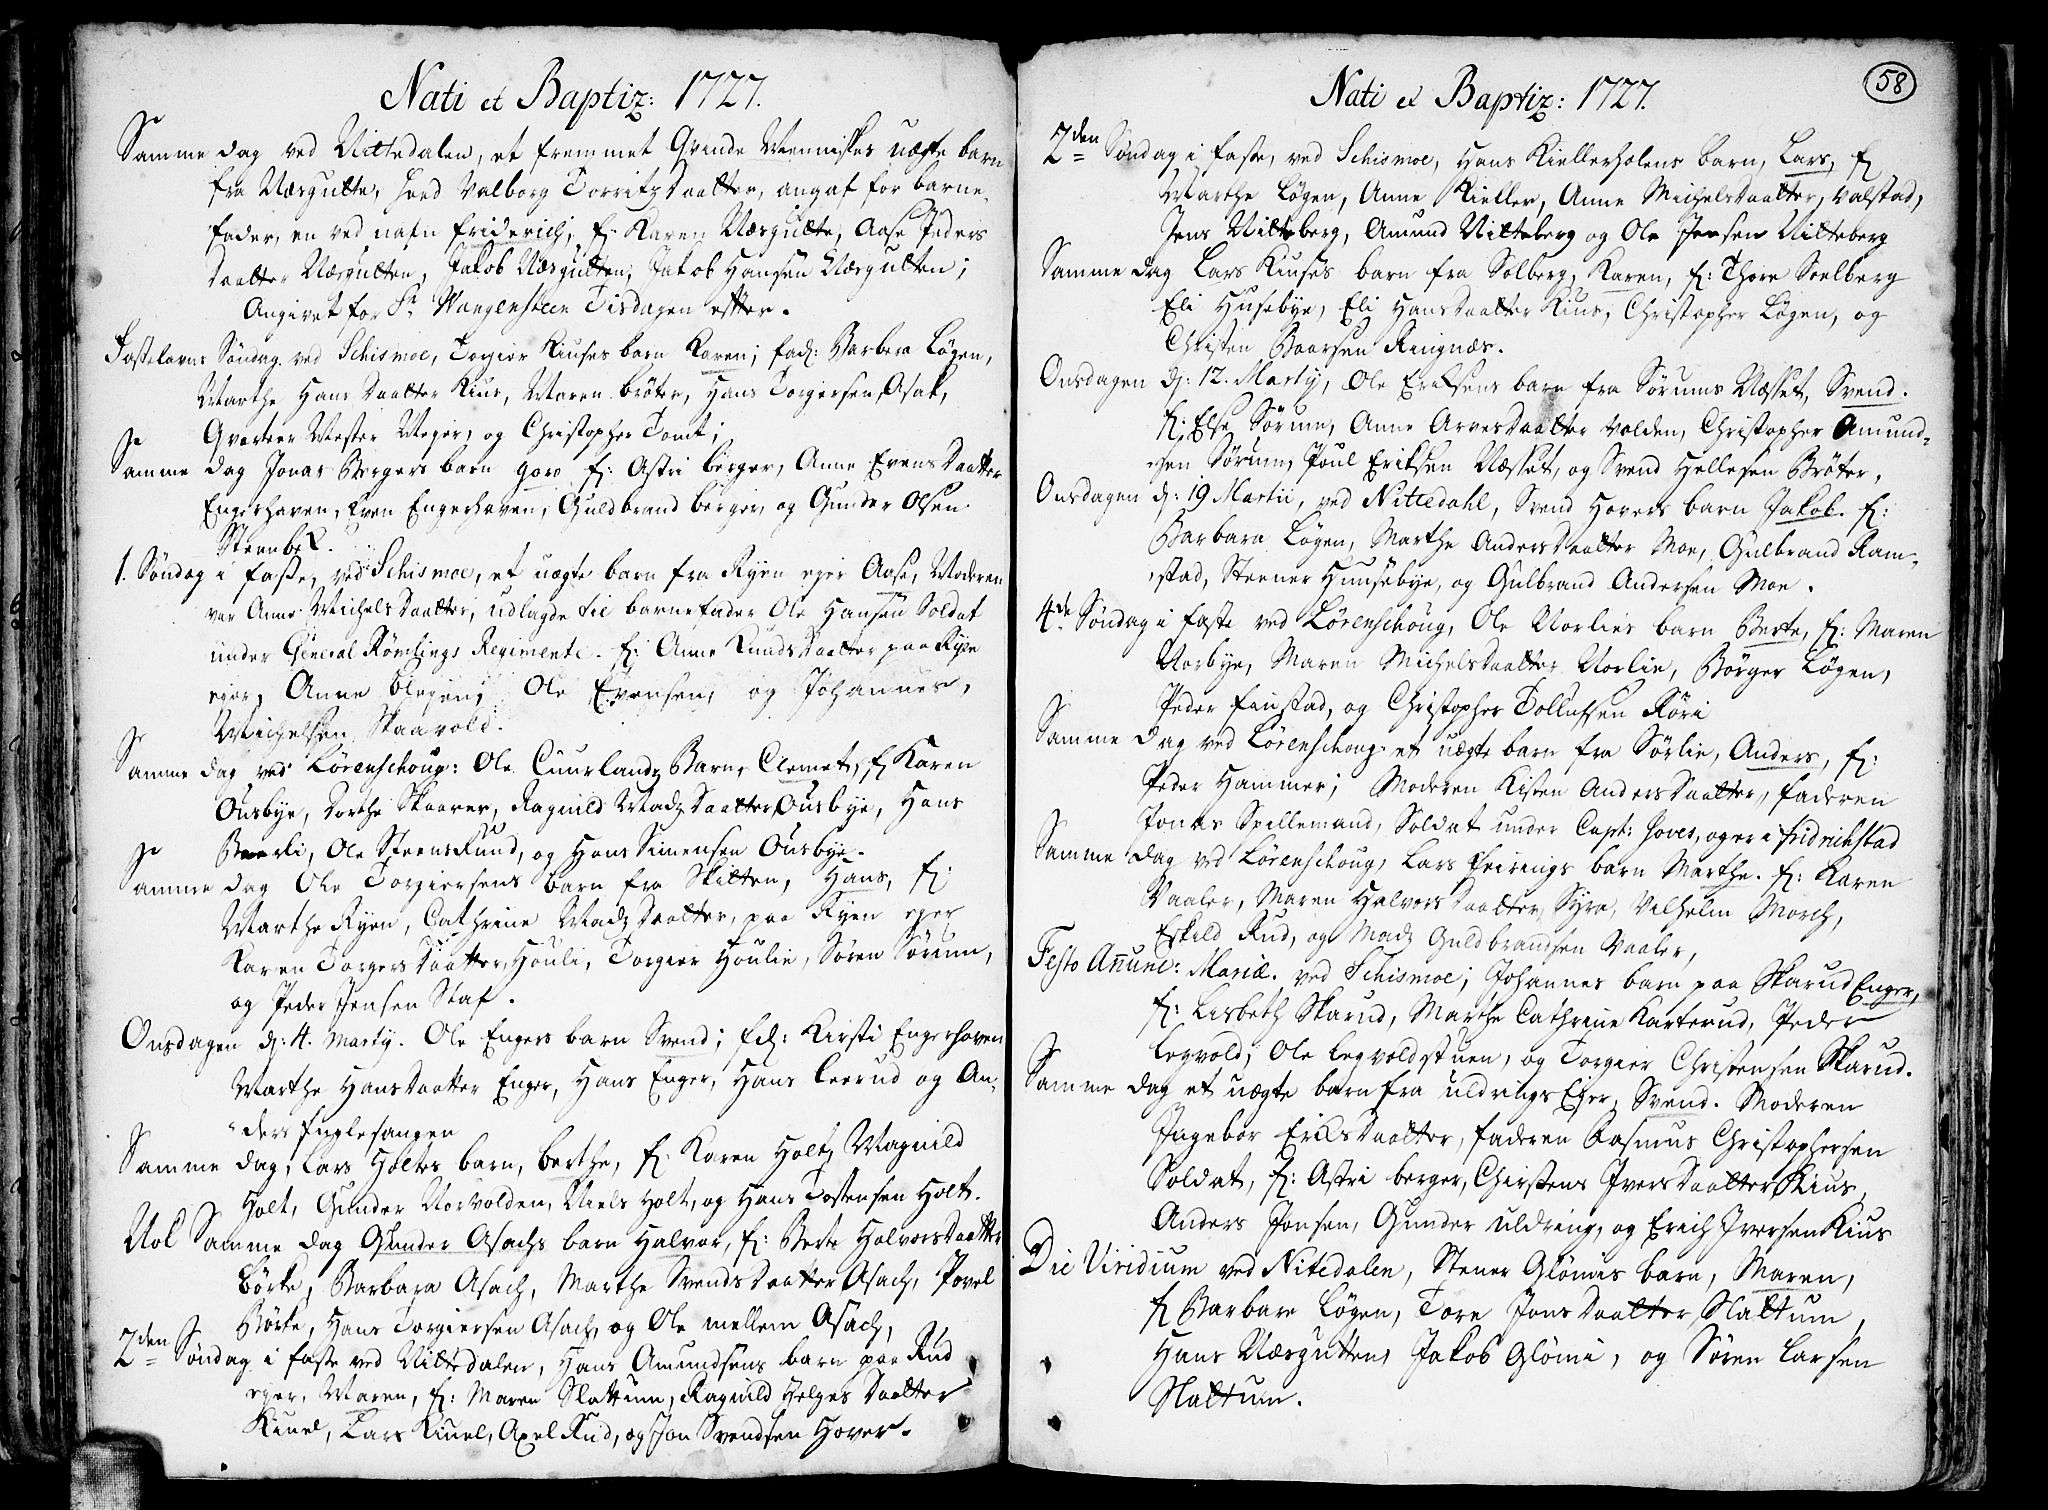 Nati et Baptiz: 1727.
Samme dag ved Nittedalen, et fremmet Qvinde Menniskes uægte barn
fra Næsgutte, hved Valborg Torritz Daatter, angaf for barne-
fader, en ved nafn friderich, f: Karen Næsgutte, Aase Peders
Daatter Næsgutten, Jakob Næsgutten, Jakob Hansen Næsgutten;
Angivet for Sr Wangensteen Tisdagen effter.
Fastelavns Søndag ved Schismoe, Torgier Kiuses barn Karen; fad: Barbera Løgen,
Marthe Hans Daatter Kius, Maren bröter, Hans Torgersen Asak,
Qvarteer Mester Meyer, og Christopher Tomt;
Samme dag Jonas Bergers barn goro f: Astri berger, Anne Evens Daatter
Engerhaven, Even Engerhaven, Guldbrand berger, og Gunder Olsen
Steenbek.
1. Søndag i faste, ved Schismoe, et uægte barn fra Ryen eger Aase, Moderen
var Anne Michels Daatter, udlagde til barnefader Ole Hansen Soldat
under General Rømlings Regimente. f: Anne Knuds Daatter paa Ryen
eger, Anne Ole Evensen, og Johannes
Michelsen Skaavold.
Samme dag ved Lörenschoug: Ole Cuurlandz Barn, Clemet, f Karen
Ousbye, Dorthe Skaarer, Ragnild Madz Daatter Ousbye, Hans
Ole Steensrund, og Hans Simensen Ousbye.
Samme dag Ole Torgiersens barn fra Skilten, Hans, f:
Marthe Ryen, Cathrine Madz Daatter, paa Ryen eger
Karen Torgers Daatter Houli, Torgier Houlie, Sören Sörum,
og Peder Jensen Staf.
Onsdagen d: 4. Martÿ. Ole Engers barn Svend; fad: Kirsti Engerhaven
Marthe Hans Daatter Enger, Hans Enger, Hans Leerud og An-
ders fuglesangen
Samme dag, Lars Holtes barn, berthe, f: Karen Holt, Magnild
Holt, Gunder Norvolden, Niels Holt, og Hans Tostensen Holt.
Nok Samme dag Gunder Asachs barn Halvor, f: Berte Halvors Daatter
börke, Barbara Asach, Marthe Svends Daatter Asach, Povel
Börke, Hans Torgiersen Asach, og Ole mellem Asach,
2den Søndag i faste ved Nittedalen, Hans Amundsens barn paa Rud
eger, Maren, f: Maren Slattum, Ragnild Helges Daatter
Kinel, Lars Kinel, Axel Rud, og Jon Svendsen Hover.
58
Nati et Baptiz: 1727.
2den Søndag i faste, ved Schismoe, Hans Kiellerholens barn, Lars, f
Marthe Løgen, Anne Kieller, Anne Michels Daatter, Valstad,
Jens Nitteberg, Amund Nitteberg og Ole Jensen Nitteberg
Samme dag Lars Kiuses barn fra Solberg, Karen, f: Thore Soelberg
Eli Husebye, Eli Hans Daatter Kius, Christopher Løgen, og
Christen Baarsen Ringnæs.
Onsdagen d: 12. Martÿ, Ole Eriksens barn fra Sörums Næsset, Svend.
f: Else Sörum, Anne Arves Daatter Volden, Christopher Amund-
sen Sörum, Poul Eriksen Næsset, og Svend Hellesen Bröter,
Onsdagen d: 19 Martii, ved Nittedahl, Svend Hovers barn Jakob. f:
Barbara Løgen, Marthe Anders Daatter Moe, Gulbrand Ram-
stad, Steener Huusebye, og Gulbrand Andersen Moe.
4de Søndag i faste ved Lörenschoug, Ole Norlies barn Berte, f: Maren
Norbye, Maren Michels Daatter Norlie, Börger Løgen,
Peder finstad, og Christopher Tollufsen Röri
Samme dag ved Lörenschoug et uægte barn fra Sörlie, Anders, f:
Peder Hammer; Moderen Kisten Anders Daatter, faderen
Jonas Spillemand, Soldat under Capt: Hoves, og er i fridrichstad
Samme dag ved Lörenschoug, Lars feirings barn Marthe. f: Karen
Vaaler, Maren Halvors Daatter, Syra, Vilhelm Morch,
Eskild Rud, og Madz Guldbrandsen Vaaler,
Festo Anunc: Mariæ. ved Schismoe; Johannes barn paa Skarud Enger,
f: Lisbeth Skarud, Marthe Cathrine Karterud, Peder
Legvold, Ole Legvoldstuen, og Torgier Christensen Skarud.
Samme dag et uægte barn fra uldrings Eger, Svend. Moderen
Ingebor Eriks Daatter, faderen Rasmus Christophersen
Soldat, f: Astri berger, Chirstens Ivers Daatter Kius,
Anders Jonsen, Gunder uldring, og Erich Iversen Kius
Die Viridium ved Nitedalen, Stener Glömes barn, Maren,
f Barbare Løgen, Tore Jons Daatter Slattum,
Hans Næsgutten, Jakob Glömi, og Sören Larsen
Slattum.